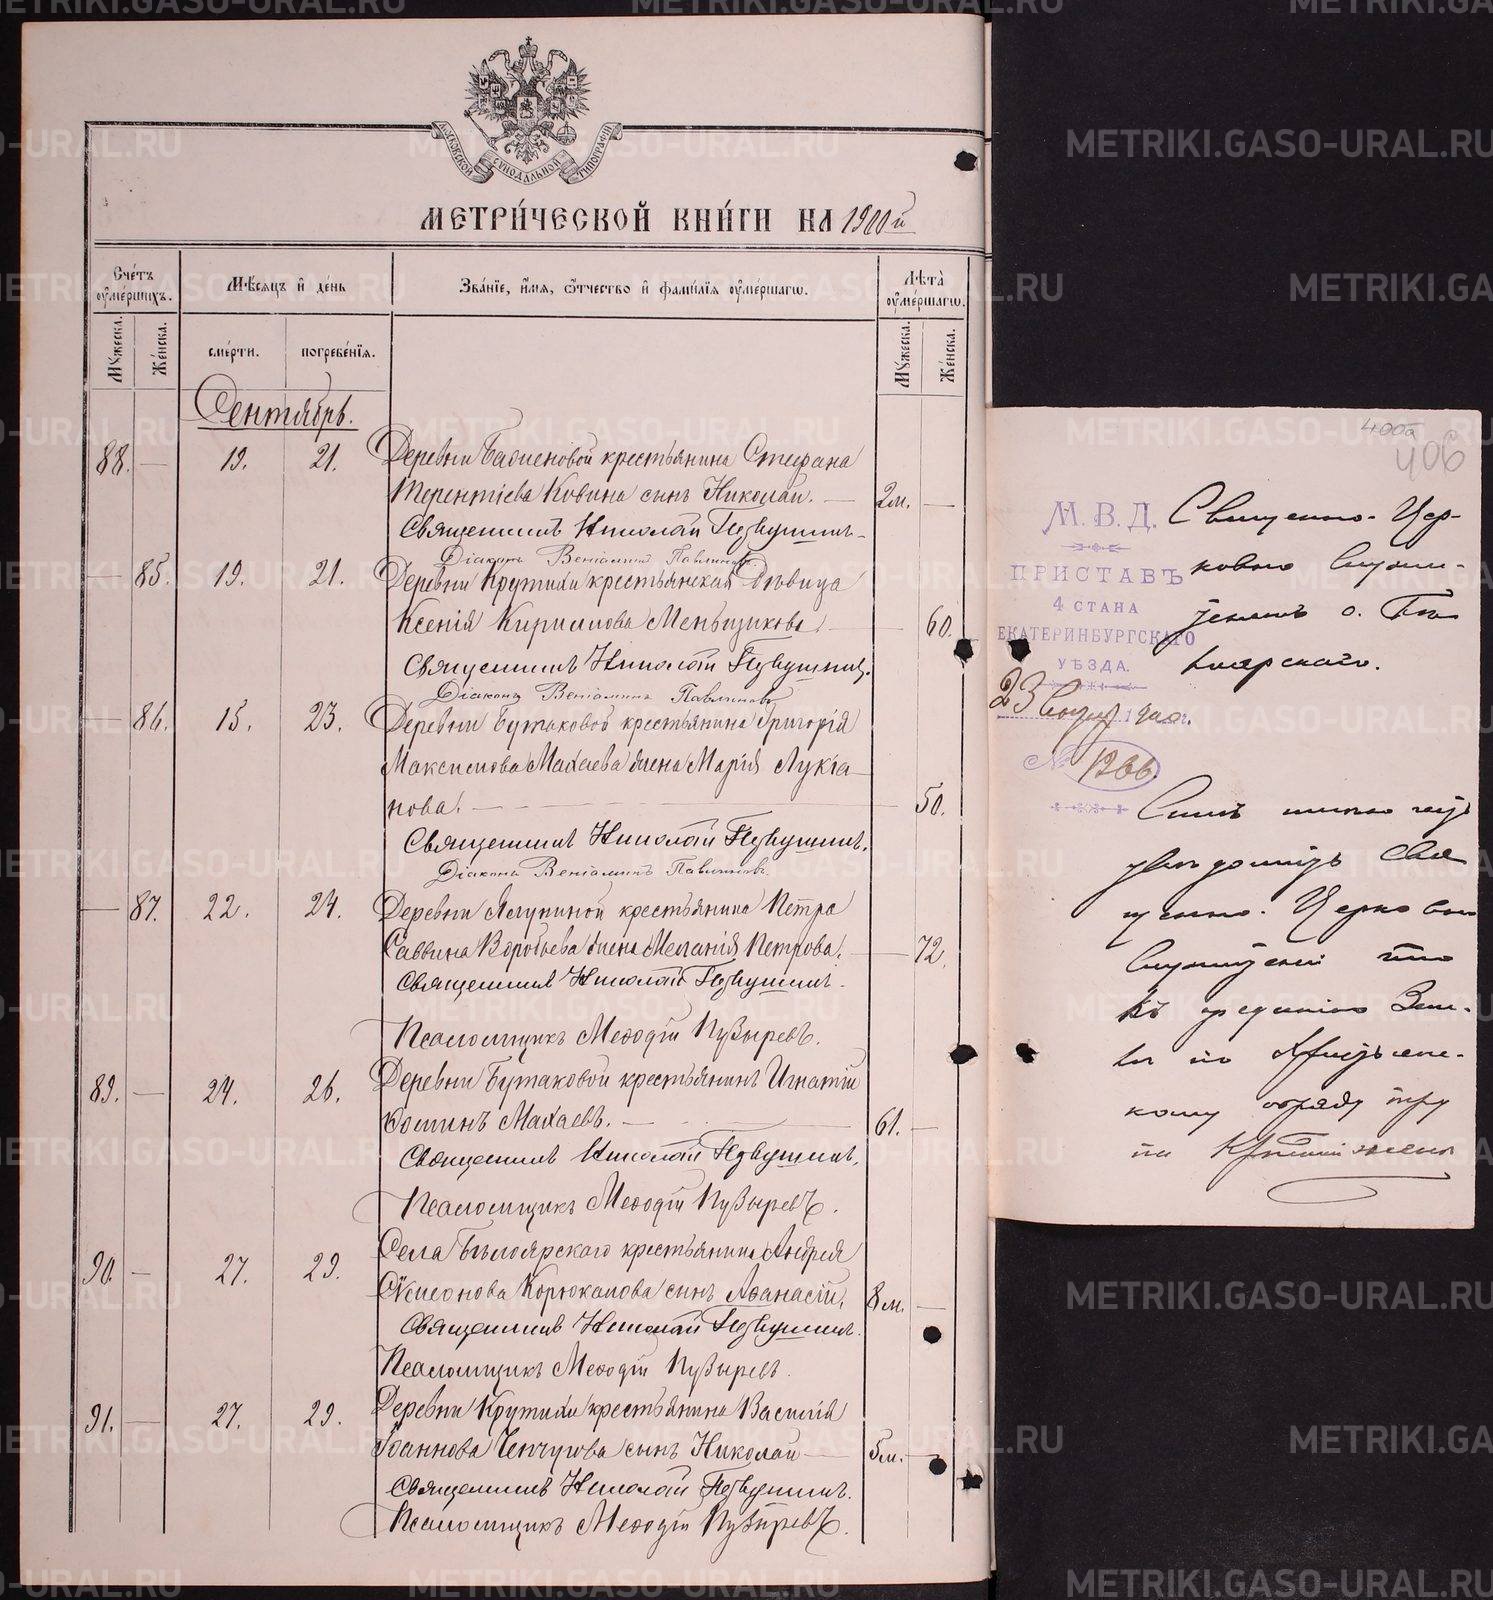 МОСКОВСКОЙ СѴНОДАЛЬНОЙ ТИПОГРАФІИ
МЕТРИ́ЧЕСКОЙ КНИ́ГИ НА 1900й
Сче́тъ оу҆ме́ршихъ.
Мѣ́сяцъ и҆ де́нь
Зва́нїе, и҆́мя, ѻ҆́тчество и҆ фами́лїя оу҆ме́ршагѡ.
Лѣта̀ оу҆ме́ршагѡ.
Мꙋ́жеска.
Же́нска.
сме́рти.
погребе́нїя.
Мꙋ́жеска.
Же́нска.
Сентябрь.
88. — 19. 21. Деревни Бабиновой крестьянина Стефана
Терентіева Ковина сынъ Николай. — 2м. —
Священникъ Николай Пѣвушинъ
Діаконъ Веніаминъ Павлиновъ
— 85. 19. 21. Деревни Крутихи крестьянская дѣвица
Ксенія Кириллова Меньщикова. — 60.
Священникъ Николай Пѣвушинъ.
Діаконъ Веніаминъ Павлиновъ
— 86. 15. 23. Деревни Бутаковой крестьянина Григорія
Максимова Махаева жена Марія Лукіа-
нова. — 50.
Священникъ Николай Пѣвушинъ.
Діаконъ Веніаминъ Павлиновъ
— 87. 22. 24. Деревни Ялуниной крестьянина Петра
Саввина Воробьева жена Меланія Петрова. — 72.
Священникъ Николай Пѣвушинъ.
Псаломщикъ Меѳодій Пузыревъ.
89. — 24. 26. Деревни Бутаковой крестьянинъ Игнатій
Ѳоминъ Махаевъ. — 61. —
Священникъ Николай Пѣвушинъ.
Псаломщикъ Меѳодій Пузыревъ.
90. — 27. 29. Села Бѣлоярскаго крестьянина Андрея
Сѵмеонова Корюкалова сынъ Аѳанасій. 8м. —
Священникъ Николай Пѣвушинъ.
Псаломщикъ Меѳодій Пузыревъ.
91. — 27. 29. Деревни Крутихи крестьянина Василія
Іоаннова Ченчугова сынъ Николай — 5м. —
Священникъ Николай Пѣвушинъ.
Псаломщикъ Меѳодій Пузыревъ.
400а
406
М.В.Д.
ПРИСТАВЪ
4 СТАНА
ЕКАТЕРИНБУРГСКАГО
УѢЗДА.
23 1900.
№ 1366
Священно-Цер-
ковно служи-
телямъ с. Бѣ-
лоярскаго.
Симъ
Свя
щенно-Церковно
служителей что
къ преданію Зем-
ли по Христіанс-
кому обряду тру
па
METRIKI.GASO-URAL.RU